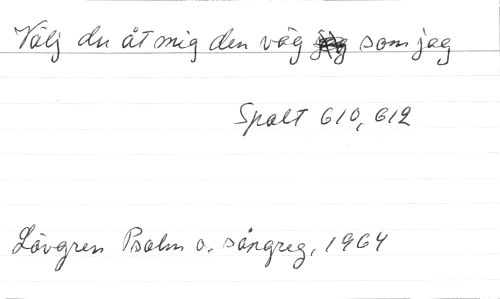 Välj du åt mig den väg som jag
Spalt 610, 612
Lövgren Psalm o. sångreg, 1964